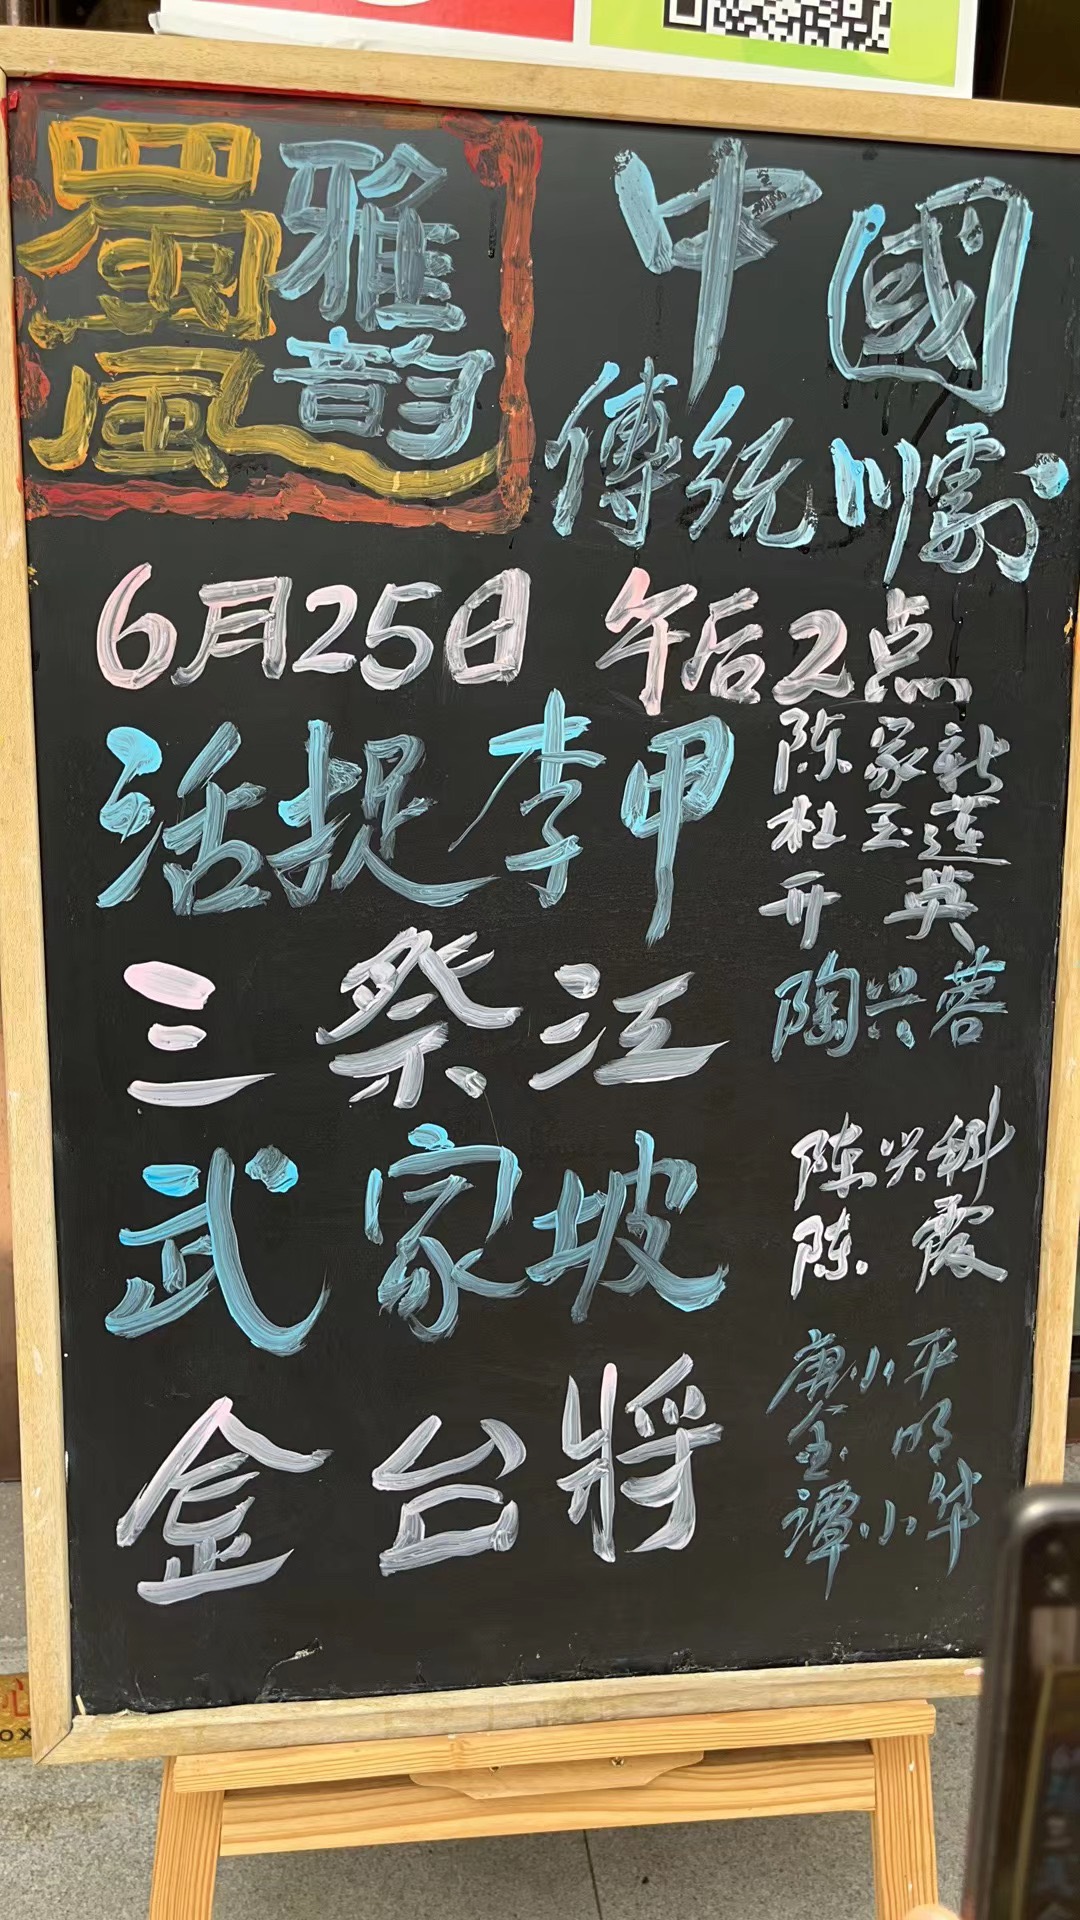 蜀風
雅韵
中國
傳統川劇
6月25日 午后2点
活捉李甲
陈家新
杜玉莲
英
陶兴蓉
三祭江
武家坡
陈兴科
陈霞
金台將
唐小平
明
谭小华